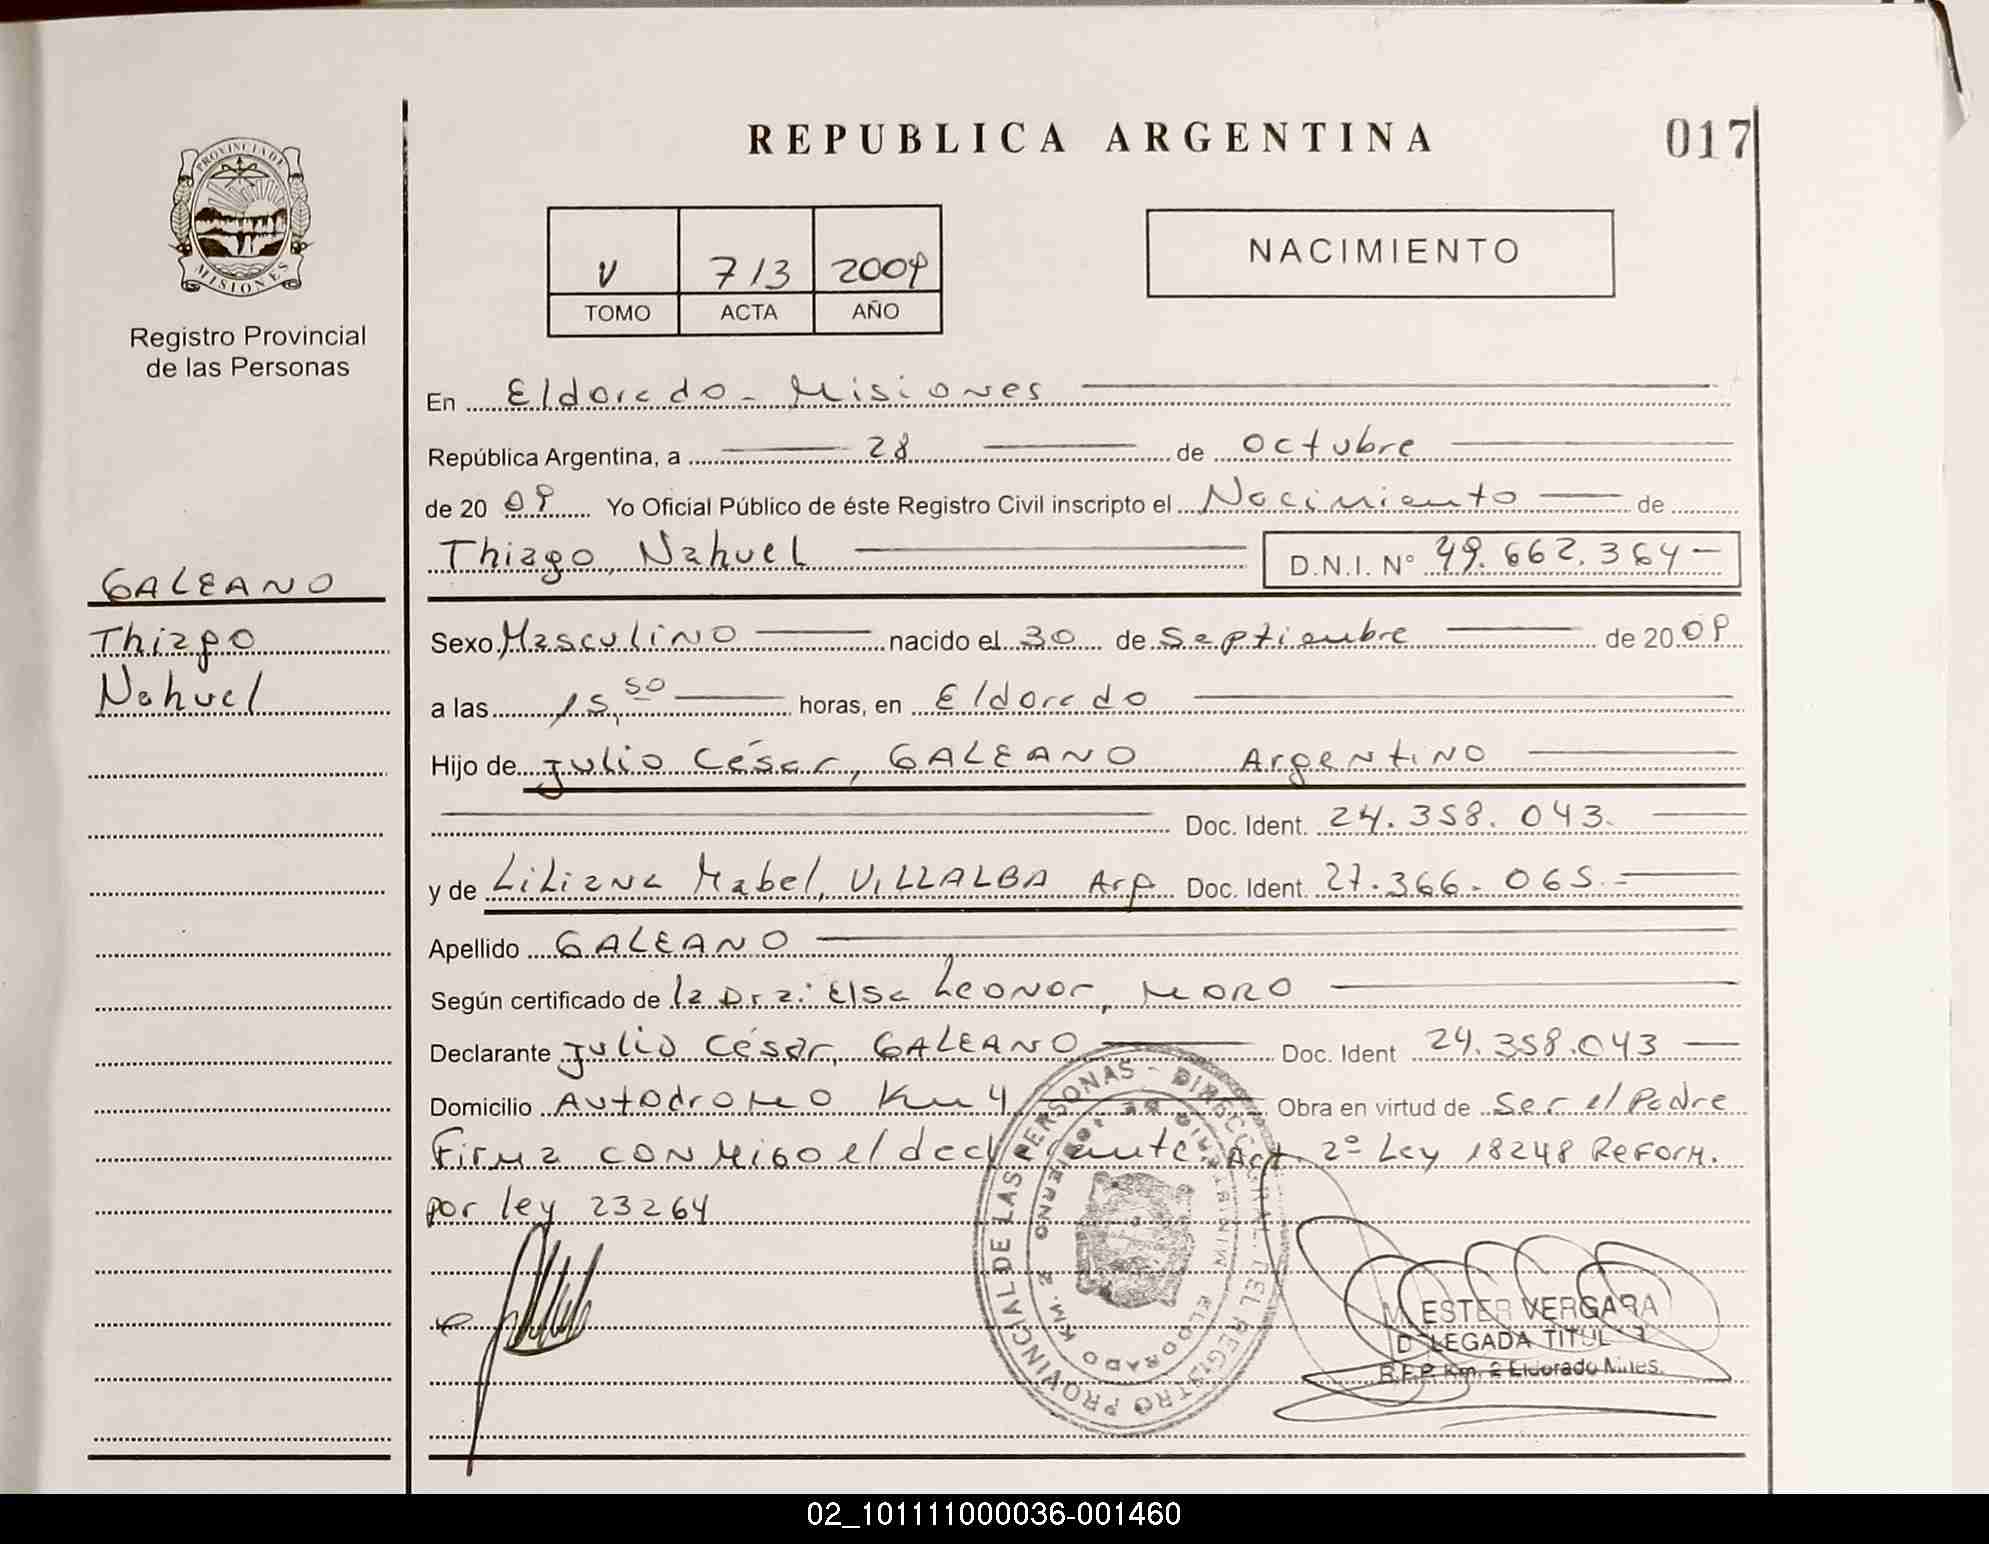 REPUBLICA ARGENTINA
017
PROVINCIA DE
MISIONES
Registro Provincial
de las Personas
V 713 2009
TOMO ACTA AÑO
NACIMIENTO
En Eldorado - Misiones
República Argentina, a 28 de octubre
de 20 09 Yo Oficial Público de éste Registro Civil inscripto el Nacimiento de
Thiago, Nahuel D.N.I. Nº 49.662.364
GALEANO
Thiago
Nahuel
Sexo Masculino nacido el 30 de Septiembre de 20 09
a las 15,50 horas, en Eldorado
Hijo de Julio César, GALEANO Argentino
Doc. Ident. 24.358.043.
y de Liliana Mabel, VILLALBA Arg Doc. Ident. 27.366.065.-
Apellido GALEANO
Según certificado de la Dra: Elsa Leonor, MORO
Declarante Julio César, GALEANO Doc. Ident 24.358.043
Domicilio Autodromo Km 4 Obra en virtud de Ser el Padre
Firma conmigo el declarante. Act. 2º Ley 18248 Reform.
por ley 23264
REGISTRO PROVINCIAL DE LAS PERSONAS - DIRECC
ELDORADO KM. 2
M. ESTER VERGARA
DELEGADA TITUL
R.P.P. Km. 2 Eldorado Mnes.
02_101111000036-001460